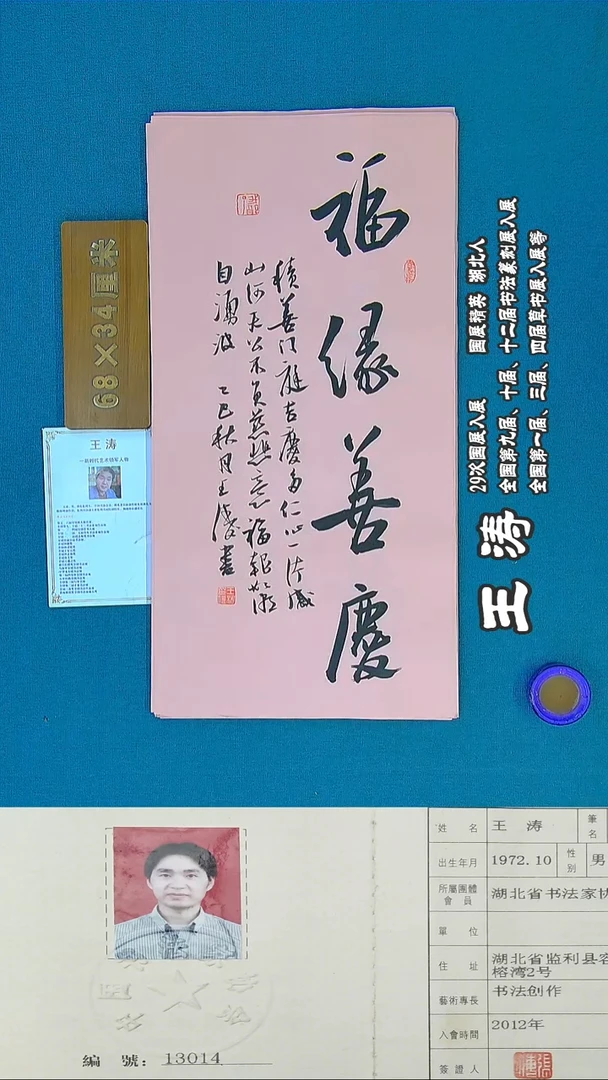 福缘善慶
積善门庭吉慶多仁心一片感
山河天公不負慈懸意福報如潮
自湧波 乙巳秋月王涛書
68×34厘米
王 涛
29次国展入展 国展精英 湖北人
全国第九届、十届、十二届书法篆刻展入展
全国第一届、三届、四届草书展入展等
王涛
姓 名 王 涛 筆名
出生年月 1972.10 性别 男
所屬團體會員 湖北省书法家协
單 位
住 址 湖北省监利县容
榕湾2号
藝術專長 书法创作
入會時間 2012年
簽 證 人
編 號: 13014